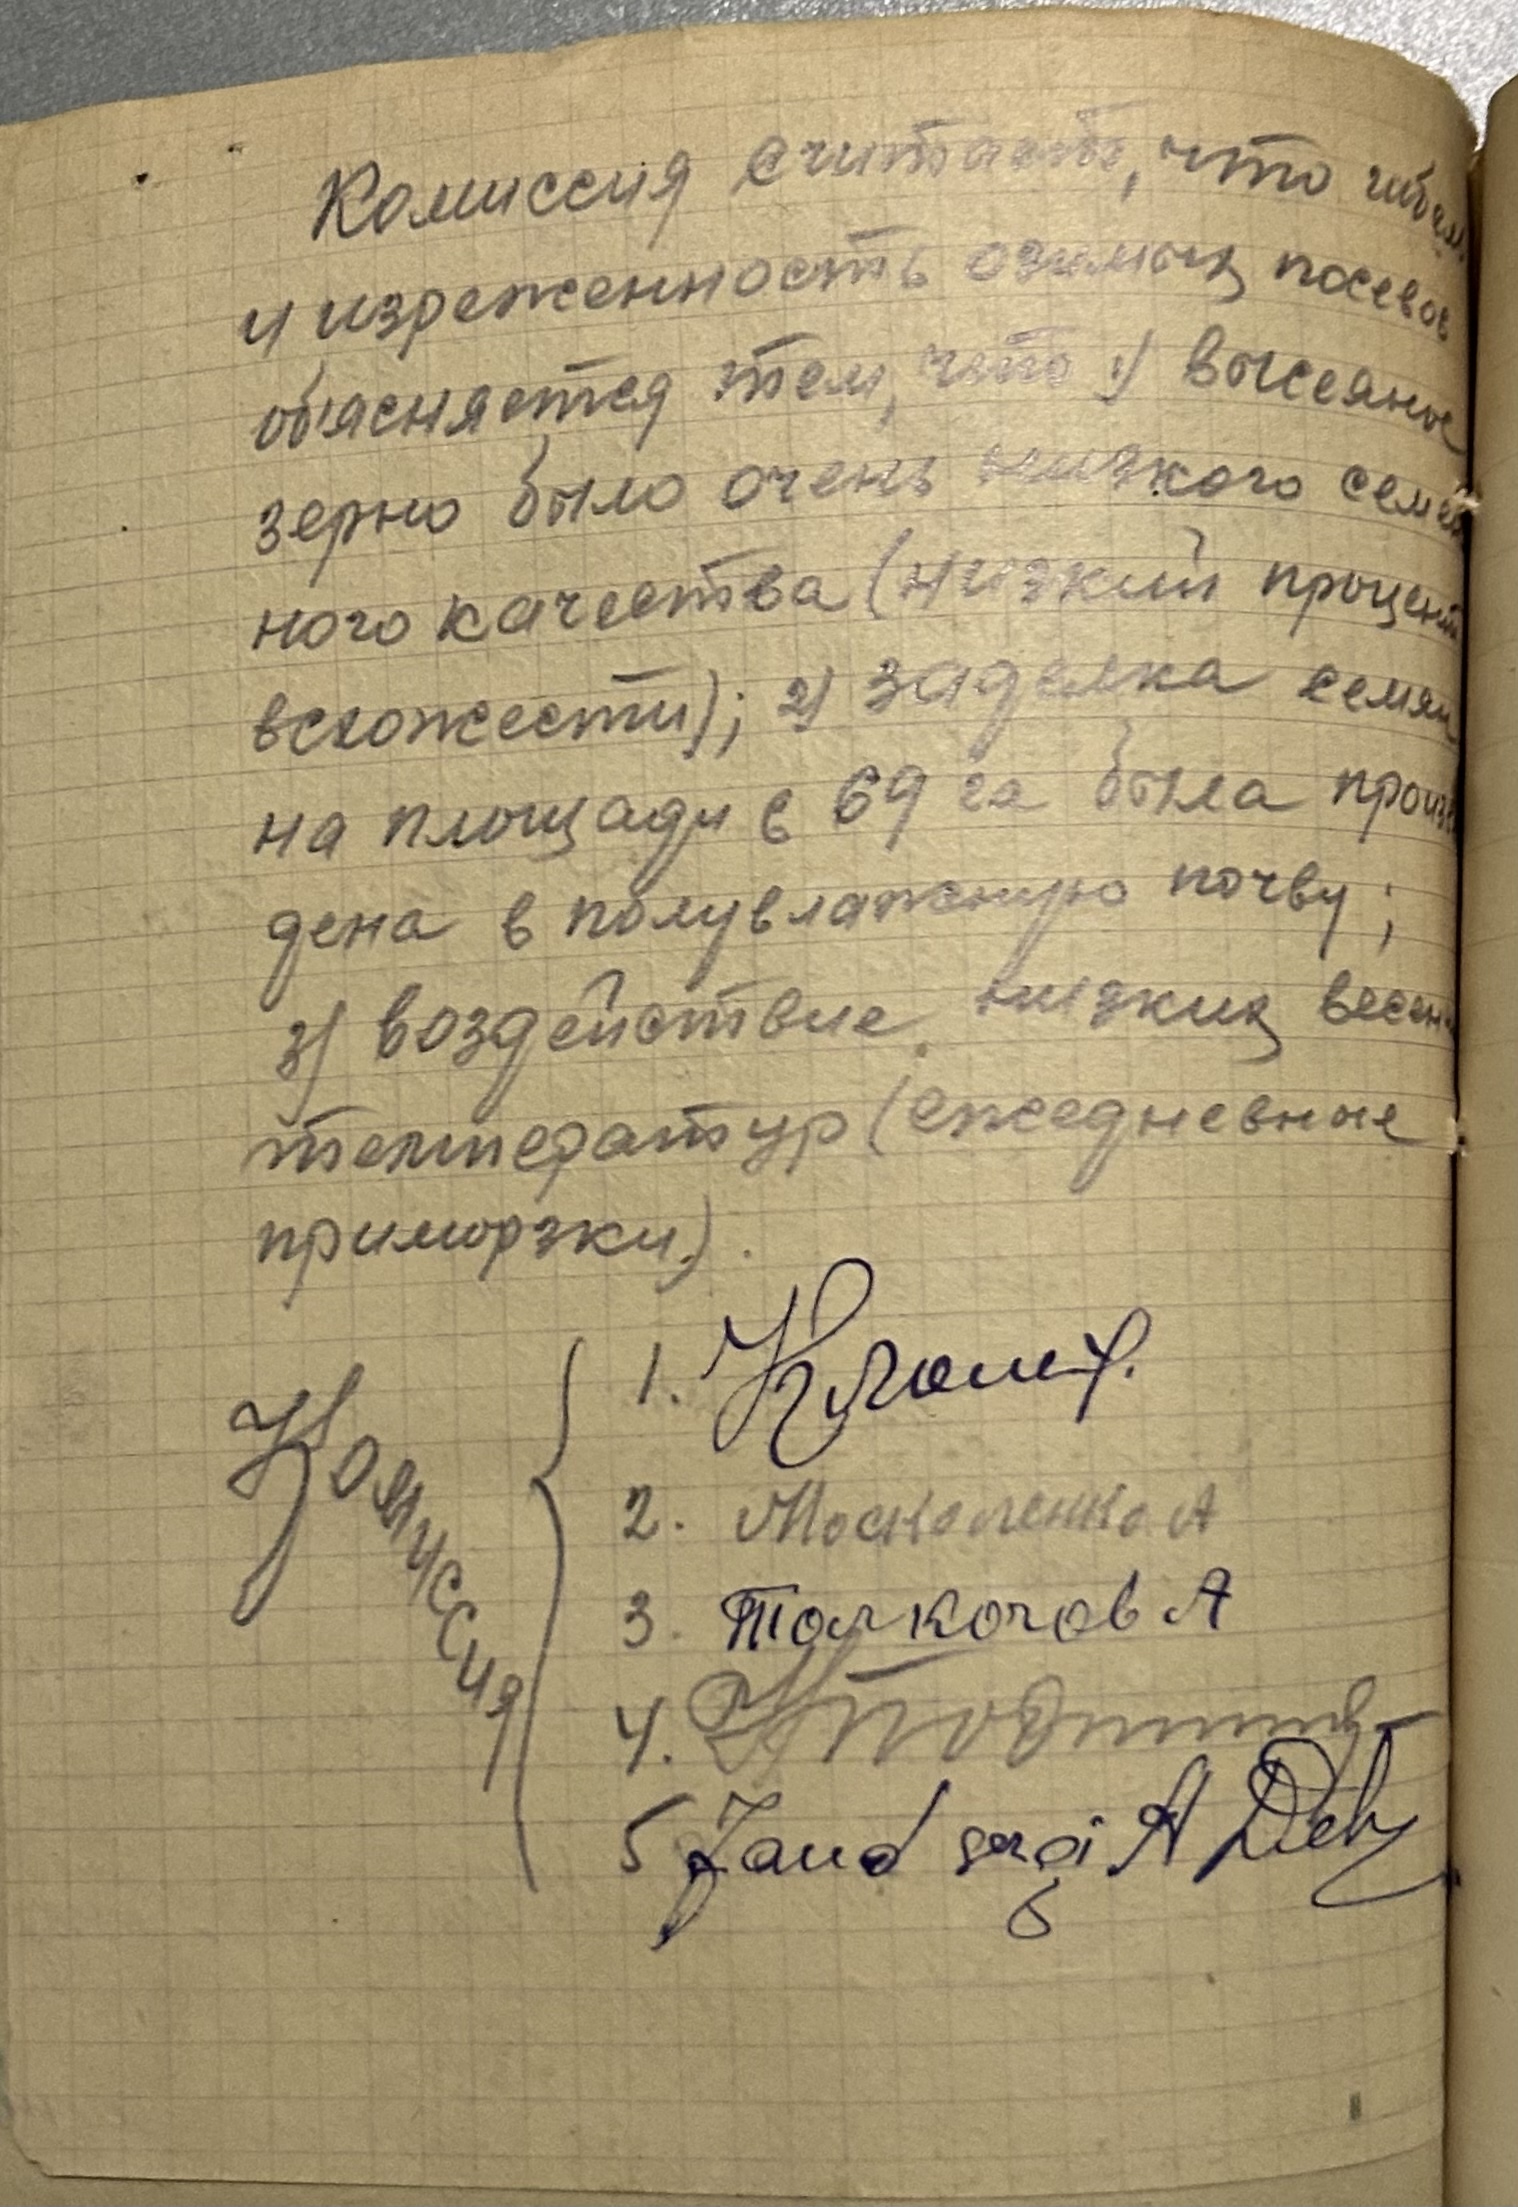 Комиссия считает, что гибель
и изреженность озимых посевов
обясняется тем, что 1) высеяное
зерно было очень низкого семен
ного качества (низкий процент
всхожести); 2) заделка семян
на площади в 69 га была произве
дена в полувлажную почву;
3) воздействие низких весен
температур (ежедневные
приморзки).
Комиссия
1.
2. Москаленко А
3. Толкочов А
4.
5